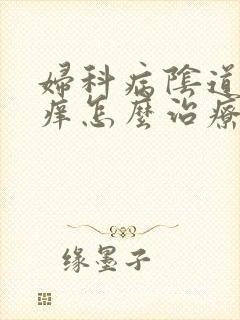 婦科病陰道
痒怎麼治療
缘墨子